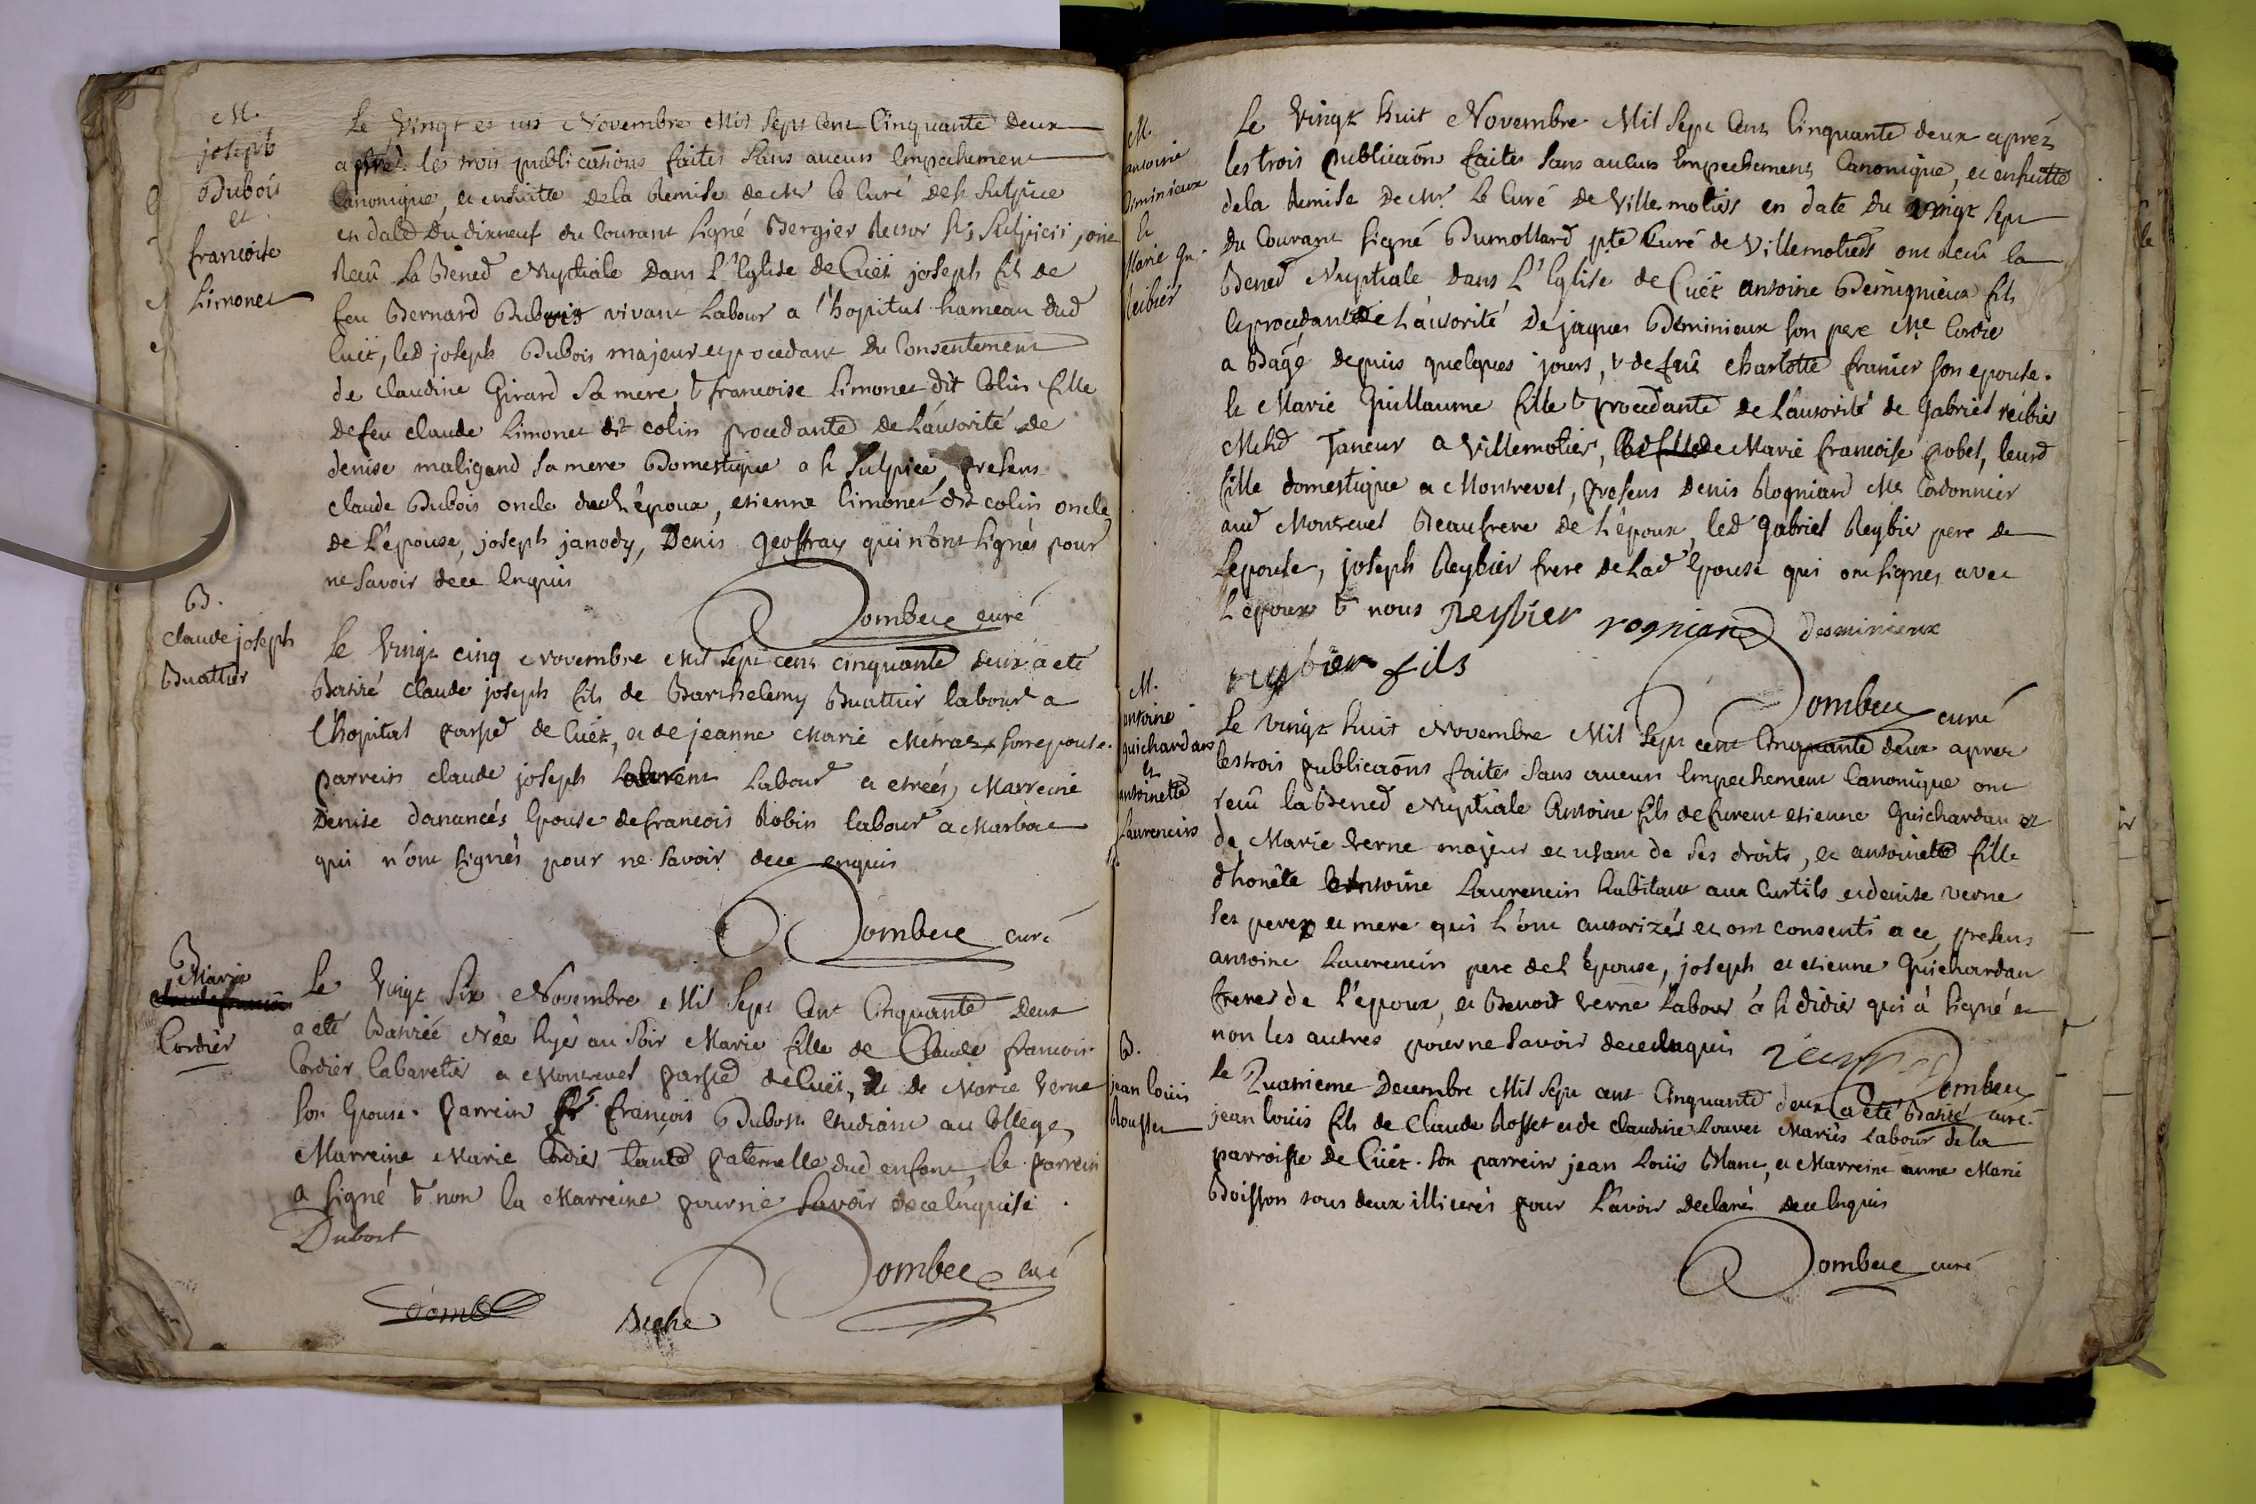 M.
joseph
Dubois
et
francoise
Limonet
Le vingt et un Novembre Mil sept Cent Cinquante deux
aprés les trois publications faites sans aucun Empechement
Canonique, et ensuitte dela Remise de Mr le Curé de st Sulpice
en date du dixneuf du Courant signé Bergier Rector sti Sulpicii, ont
Receû la Bened Nuptiale Dans L'Eglise de Cuët joseph fils de
feu Bernard Dubois vivant Labour a l'hopital hameau dud
Cuët, led joseph Dubois majeur et procedant du Consentement
de claudine Girard sa mere, & francoise Limonet dit Colin fille
defeu claude Limonet dit colin procedante de L'autorité de
denise maligand sa mere Domestique a st Sulpice, presens
claude Dubois oncle de L'époux, etienne limonet dit colin oncle
de L'épouse, joseph janody, Denis geoffray qui n'ont signés pour
ne savoir dece Enquis
Dombeee curé
B.
claude joseph
Buattier
Le vingt cinq Novembre Mil sept cent cinquante deux a eté
Batizé claude joseph fils de Barthelemy Buattier labour a
l'hopital parsse de Cuët, et de jeanne Marie Metraz son epouse.
parrein claude joseph Laurent Labour a etreés, Marreine
Denise dananchés Epouse de francois Robin labour a Marboz
qui n'ont signés pour ne savoir dece enquis
Dombeee curé
B
Marie
Cordier
Le vingt six Novembre Mil sept Cent Cinquante Deux
a eté Batizée Née hyer au soir Marie fille de Claude francois
Cordier Cabaretier a Montrevel parsse de Cuët, et de Marie Verne
son Epouse. parrein françois Dubost etudiant au College,
Marreine Marie Cordier tante paternelle dud enfant, le parrein
a signé & non la Marreine pour ne savoir dece Enquise.
Dubost
Dombeee curé
M.
antoine
Deminieux
&
Marie Gu.
Reibier
Le vingt huit Novembre Mil sept Cent Cinquante deux aprés
les trois publicaõns faites sans aucun Empechement Canonique, et ensuitte
dela Remise de Mr Le Curé de Villemotiers en date du vingt sept
du Courant signé Dumollard ptre Curé de Villemotiers ont Receû la
Bened Nuptiale dans L'Eglise de Cuët antoine Deminieux fils
et procedant de L'autorité de jaques Deminieux son pere Me Cordier
a Bagé depuis quelques jours, & de feüe charlotte franier son epouse.
& Marie Guillaume fille & procedante de L'autorité de Gabriel reibier
Mchd Taneur a Villemotier, & de Marie francoise pobel, leurd
fille domestique a Montrevel, presens Denis Rogniard Me Cordonnier
aud Montrevel Beaufrere de L'époux, led gabriel Reybier pere de
L'epouse, joseph Reybier frere de Lad Epouse qui ont signés avec
L'epoux & nous Reybier rogniard desminieux
reybier fils
Dombeee curé
M.
antoine
guichardan
et
antoinette
Laurencin
Le vingt huit Novembre Mil sept cent Cinquante deux aprés
les trois publicaõns faites sans aucun Empechement Canonique ont
receû la Bened Nuptiale Antoine fils de furent etienne Guichardan et
de Marie Verne majeur et usant de ses droits, et antoinette fille
d'honête Antoine Laurencin habitant aux Curtils et denise verne
ses pere et mere qui L'ont autorizés et ont consenti a ce, presens
antoine Laurencin pere de L'Epouse, joseph et etienne Guichardan
freres de l'époux, et Benoit verne Labour à st didier qui à signé et
non les autres pour ne savoir dece Enquis
Dombeee
curé
B.
jean louis
Rousset
Le Quatrieme Decembre Mil sept cent Cinquante deux a eté Batizé
jean louis fils de Claude Rosset et de claudine Louvet Mariés Labour de la
parroisse de Cuët. son parrein jean Loüis Blanc, et Marreine anne Marie
Boisson tous deux illiterés pour L'avoir declaré dece Enquis
Dombeee curé